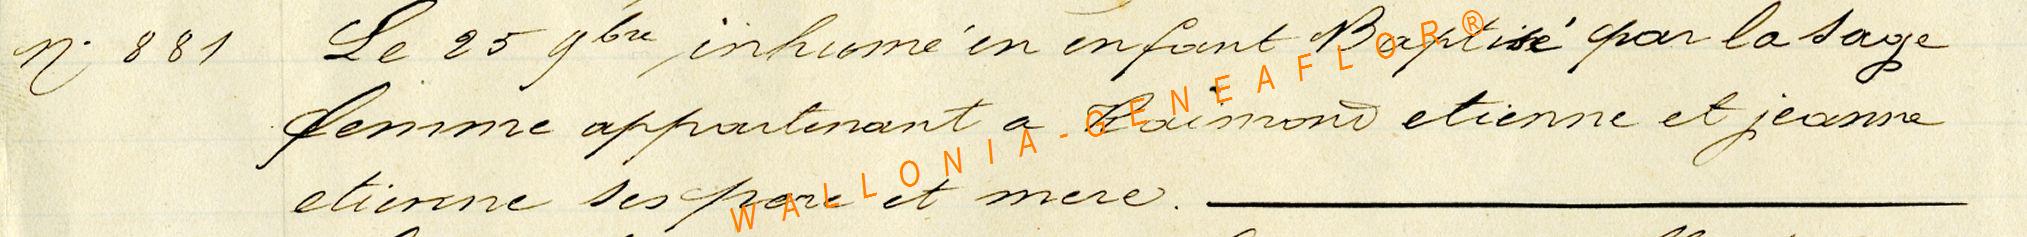 N.° 881 Le 25 9bre inhumé en enfant Baptisé par la sage
femme appartenant a Raimond etienne et jeanne
etienne ses pere et mere.
WALLONIA-GENEAFLOR®